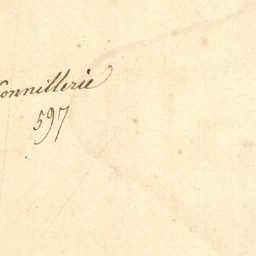 onnillerie
597